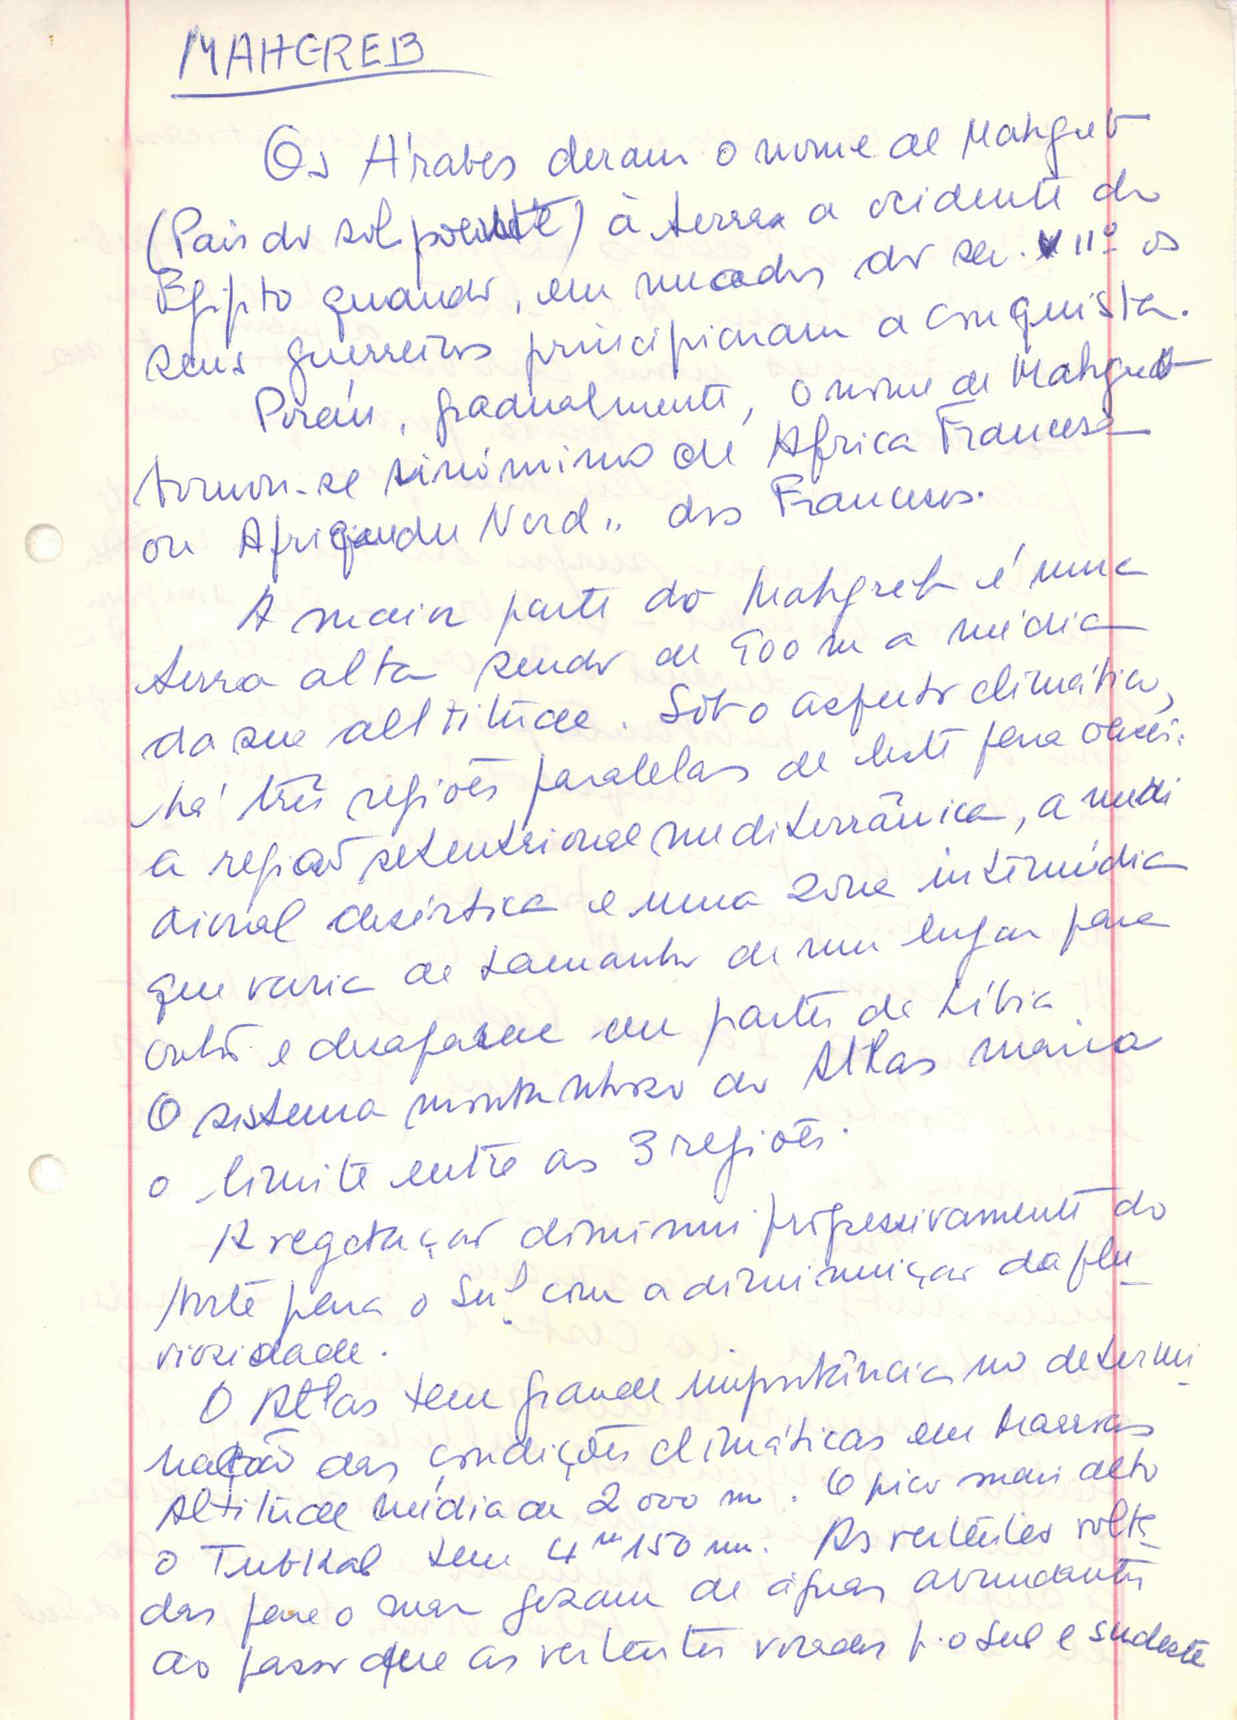 MAHGREB
Os Árabes deram o nome de Mahgreb
(País do sol poente) à terra a ocidente do
Egipto quando, em meados do sec. VIIº os
seus guerreiros principiaram a conquista.
Porém, gradualmente, o nome de Mahgreb
tornou-se sinónimo de Africa Francesa
ou Afrique du Nord" dos Franceses.
A maior parte do Mahgreb é uma
terra alta sendo de 900 m a média
da sua altitude. Sob o aspecto climático,
há três regiões paralelas de leste para oeste:
a região setentrional mediterrânica, a meri
dional desértica e uma zona intermédia
que varia de tamanho de um lugar para
outro e desaparece em partes da Líbia
O sistema montanhoso do Atlas marca
o limite entre as 3 regiões.
A vegetação diminui progressivamente do
Norte para o Sul com a diminuição da plu_
viosidade.
O Atlas tem grande importância na determi_
nação das condições climáticas em Marrocos
Altitude média de 2 000 m. O pico mais alto
o Tubkal tem 4 150 m. As vertentes volta_
das para o mar gozam de águas abundantes
ao passo que as vertentes viradas p. o Sul e Sudeste